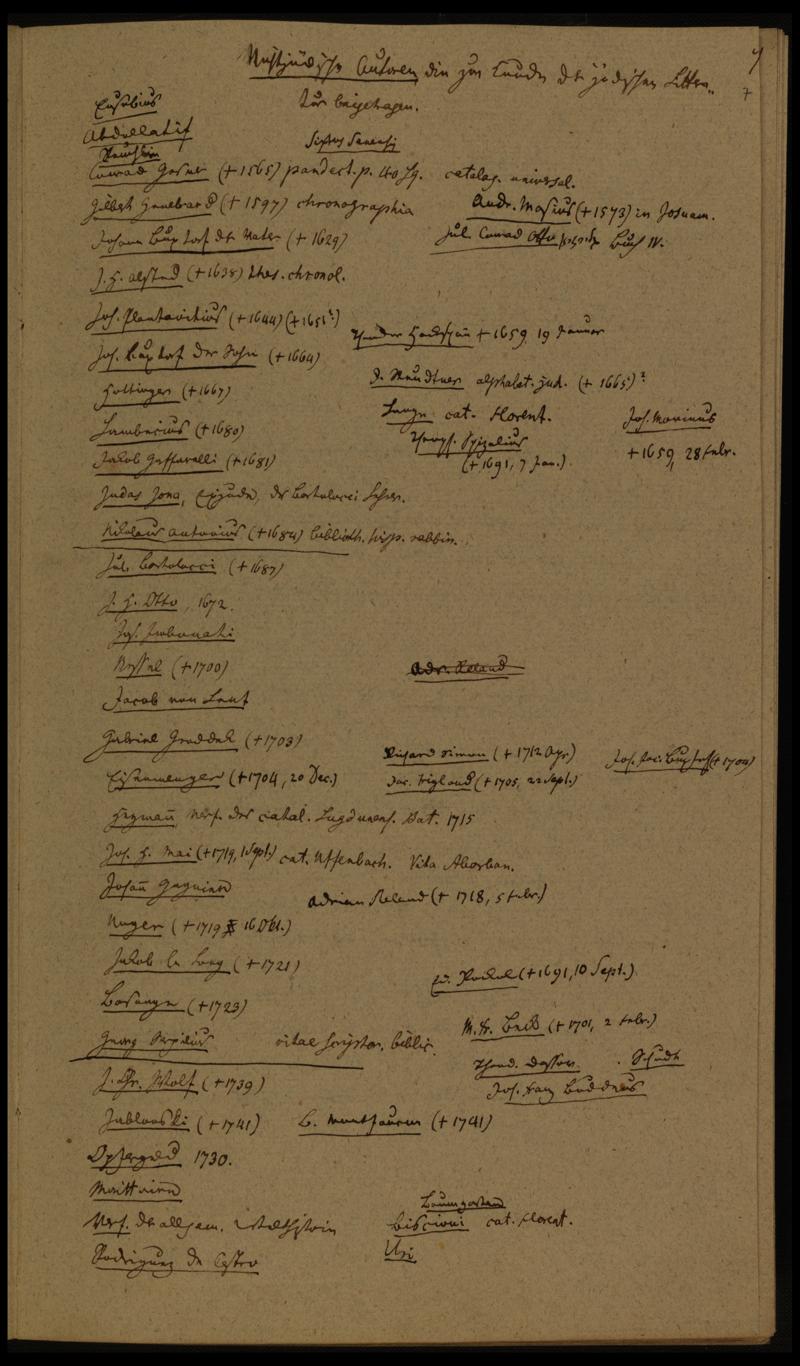 Nichtjüdische Autoren die zur Kunde der jüdischen Litera-
tur beigetragen.
Eusebius
Abdollatif
Reuchlin
Sixtus Senensis
Conrad Gesner (+ 1565) pandect. p. 40 sq. catalog. universal.
Gilbert Genebrard (+ 1597) chronographia
Andr. Masius (+ 1573) in Josuam.
Johann Buxtorf der Vater (+ 1629)
Jul. Conrad Otto Buch IV.
J. H. Alsted (+ 1638) thes. chronol.
Joh. Plantavitius (+ 1644) (+ 1651?)
Theodor Hackspan + 1659 19 Januar
Joh. Buxtorf der Sohn (+ 1664)
alphabet. jud. (+ 1665)?
Hottinger (+ 1667)
cat. Florent.
Joh. Morinus
+ 1659, 28 Febr.
Lambecius (+ 1680)
Theoph. Spizelius
(+ 1691, 7 Jan.)
Jakob Gaffarelli (+ 1681)
Judas Jona, Exjude, der Bartolocci Lehrer.
Nikolaus Antonius (+ 1684) biblioth. hisp. rabbin.
Jul. Bartolocci (+ 1687)
J. H. Otto, 1672.
Jos. Imbonati
Nessel (+ 1700)
Adr. Reland
Jacob von Lent
Gabriel Groddek (+ 1703)
Richard Simon (+ 1712 Apr.)
Joh. Jac. Buxtorf (+ 1704)
Eisenmenger (+ 1704, 20 Dec.)
Jac. Trigland (+ 1705, 22 Sept.)
Heyman, Verf. des catal. Lugdunens. Bat. 1715
Joh. H. Mai (+ 1719, 1 Sept.) cat. Uffenbach. Vita Abarban.
Johann Gagnier
Adrian Reland (+ 1718, 5 Febr.)
Unger (+ 1719 16 Okt.)
Jakob le Long (+ 1721)
Ed. Pocock (+ 1691, 10 Sept.)
Basnage (+ 1723)
M. Fr. Beck (+ 1701, 2 Febr.)
Georg Serpilius vitae scriptor. biblic.
Theod. Dassov. Schudt
J. Chr. Wolf (+ 1739)
Joh. Franz Buddeus
Jablonski (+ 1741)
B. Montfaucon (+ 1741)
Opfergeld 1730.
Maittaire
Baumgarten
Verf. der allgem.
Biscioni cat. Florent.
Rodriguez de Castro
Uri